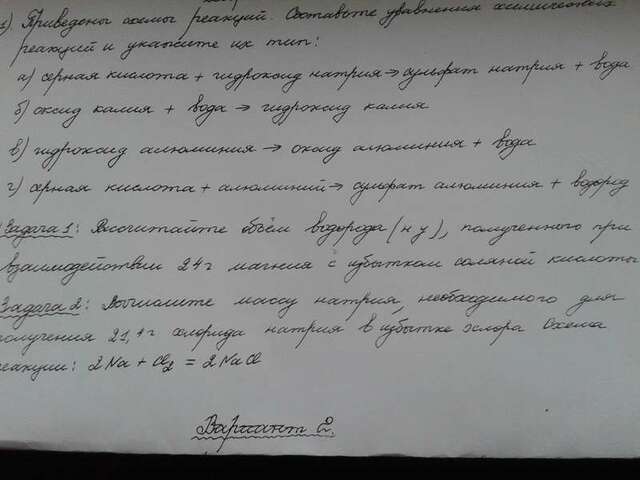 1). Приведены схемы реакций. Составьте уравнения химических
реакций и укажите их тип:
а) серная кислота + гидроксид натрия → сульфат натрия + вода
б) оксид калия + вода → гидроксид калия
в) гидроксид алюминия → оксид алюминия + вода
г) серная кислота + алюминий → сульфат алюминия + водород
Задача 1: Рассчитайте объём водорода (н у), полученного при
взаимодействии 24 г магния с избытком соляной кислоты
Задача 2: Вычислите массу натрия, необходимого для
получения 21,4 г хлорида натрия в избытке хлора Схема
реакции: 2 Na + Cl2 = 2 NaCl
Вариант 2.